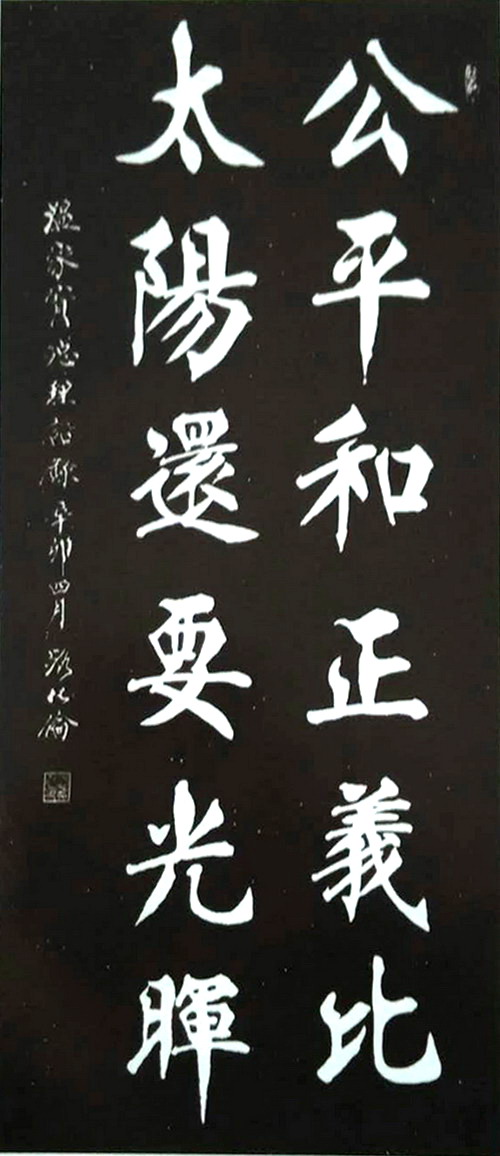 公平和正義比
太陽還要光暉
温家寶總理語錄辛卯四月